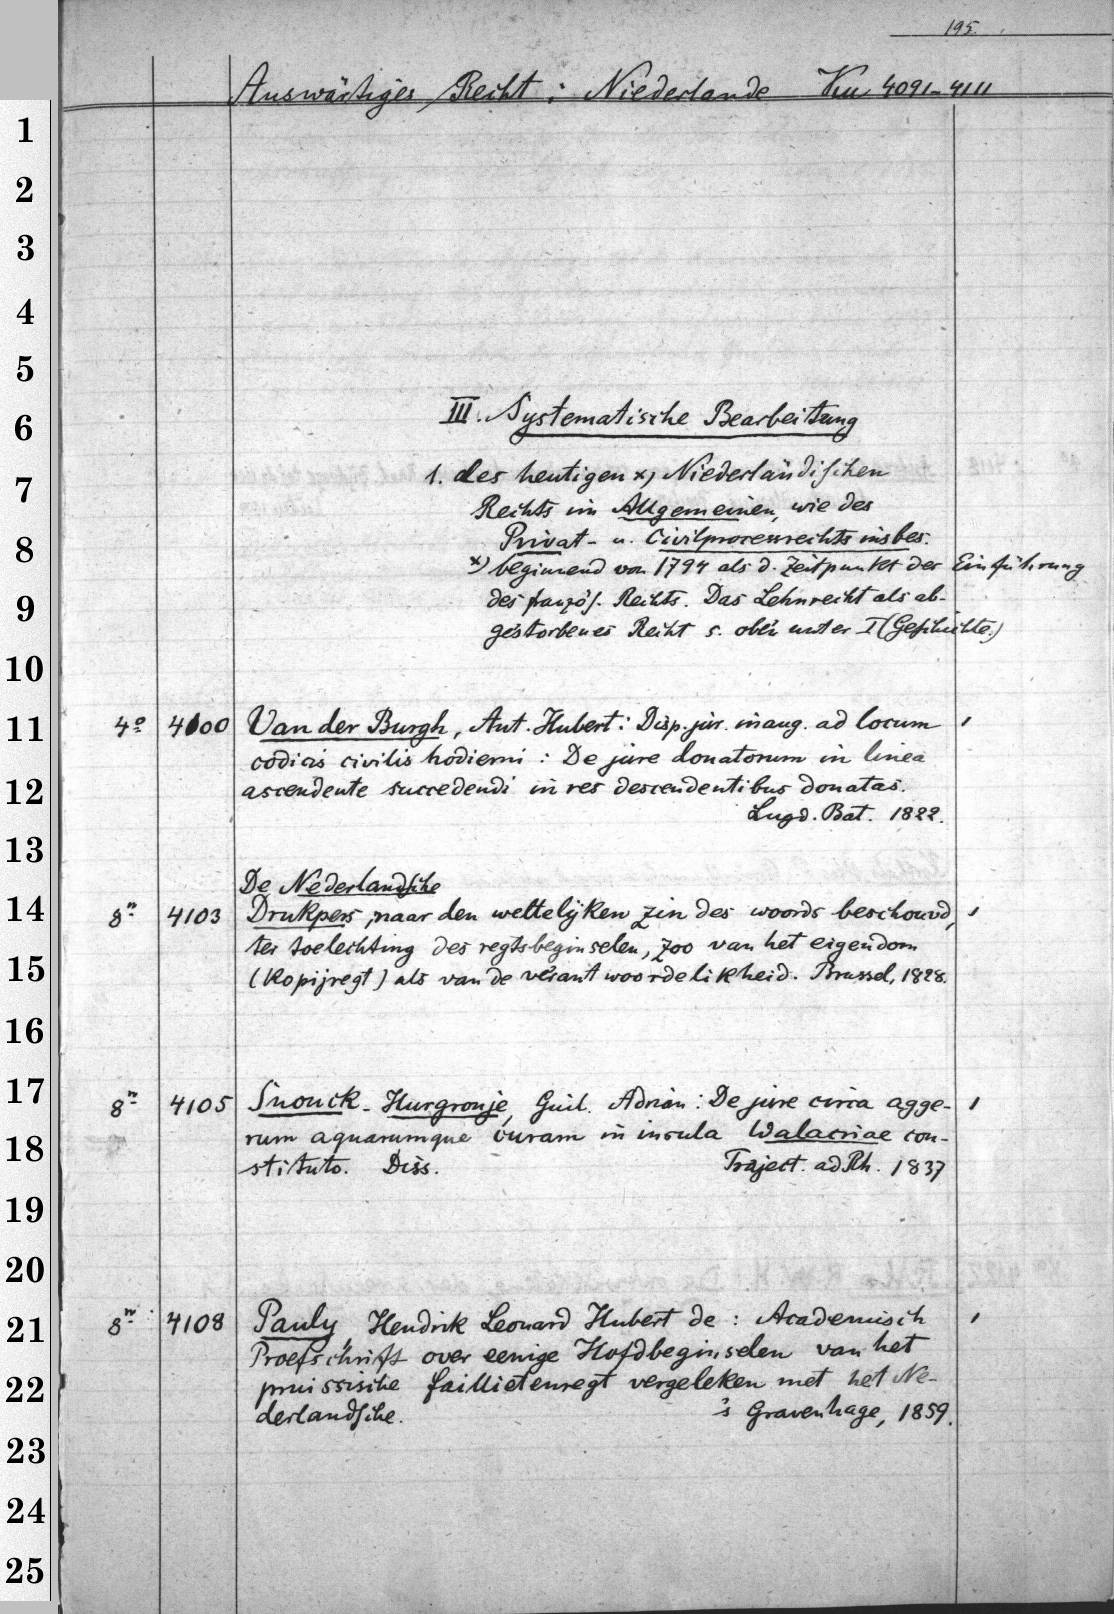 195.
Auswärtiges Recht : Niederlande Km 4091-4111
1
2
3
4
5
6 III. Systematische Bearbeitung
7 1. des heutigen x) Niederländischen
Rechts im Allgemeinen, wie des
8 Privat- u. Civilprocessrechts insbes.
x) beginnend von 1794 als d. Zeitpunkt der Einführung
9 des französ. Rechts. Das Lehnrecht als ab-
gestorbenes Recht s. oben unter I (Geschichte.)
10
11 4º 4100 Van der Burgh, Ant. Hubert: Disp. jur. inaug. ad locum
codicis civilis hodierni : De jure donatorum in linea
12 ascendente succedendi in res descendentibus donatas.
Lugd. Bat. 1822.
13
De Nederlandsche
14 8º 4103 Drukpers, naar den wettelijken zin des woords beschouwd,
ter toelechting des regtsbeginselen, zoo van het eigendom
15 (Kopijregt) als van de verantwoordelikheid. Brussel, 1828.
16
17 8º 4105 Snouck-Hurgronje, Guil. Adrian: De jure circa agge-
rum aquarumque curam in insula Walacriae con-
18 stituto. Diss. Traject. ad Rh. 1837
19
20
21 8º 4108 Pauly, Hendrik Leonard Hubert de : Academisch
Proefschrift over eenige Hofdbeginselen van het
22 pruissische faillietenregt vergeleken met het Ne-
derlandsche. 's Gravenhage, 1859.
23
24
25